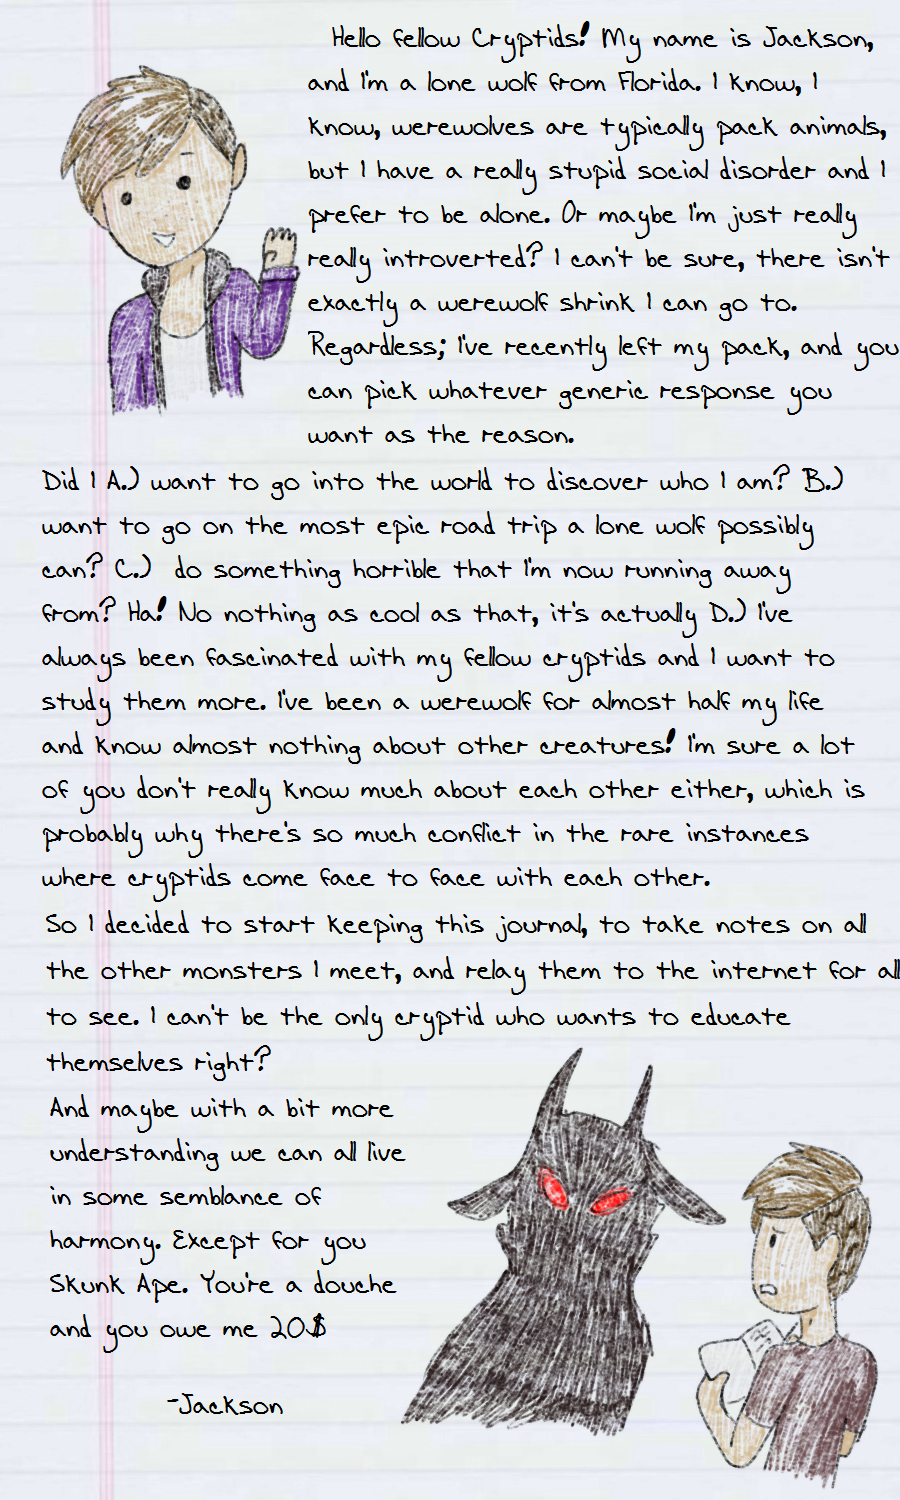 Hello fellow Cryptids! My name is Jackson,
and I'm a lone wolf from Florida. I know, I
know, werewolves are typically pack animals,
but I have a really stupid social disorder and I
prefer to be alone. Or maybe I'm just really
really introverted? I can't be sure, there isn't
exactly a werewolf shrink I can go to.
Regardless; I've recently left my pack, and you
can pick whatever generic response you
want as the reason.
Did I A.) want to go into the world to discover who I am? B.)
want to go on the most epic road trip a lone wolf possibly
can? C.) do something horrible that I'm now running away
from? Ha! No nothing as cool as that, it's actually D.) I've
always been fascinated with my fellow cryptids and I want to
study them more. I've been a werewolf for almost half my life
and know almost nothing about other creatures! I'm sure a lot
of you don't really know much about each other either, which is
probably why there's so much conflict in the rare instances
where cryptids come face to face with each other.
So I decided to start keeping this journal, to take notes on all
the other monsters I meet, and relay them to the internet for all
to see. I can't be the only cryptid who wants to educate
themselves right?
And maybe with a bit more
understanding we can all live
in some semblance of
harmony. Except for you
Skunk Ape. You're a douche
and you owe me 20$
-Jackson